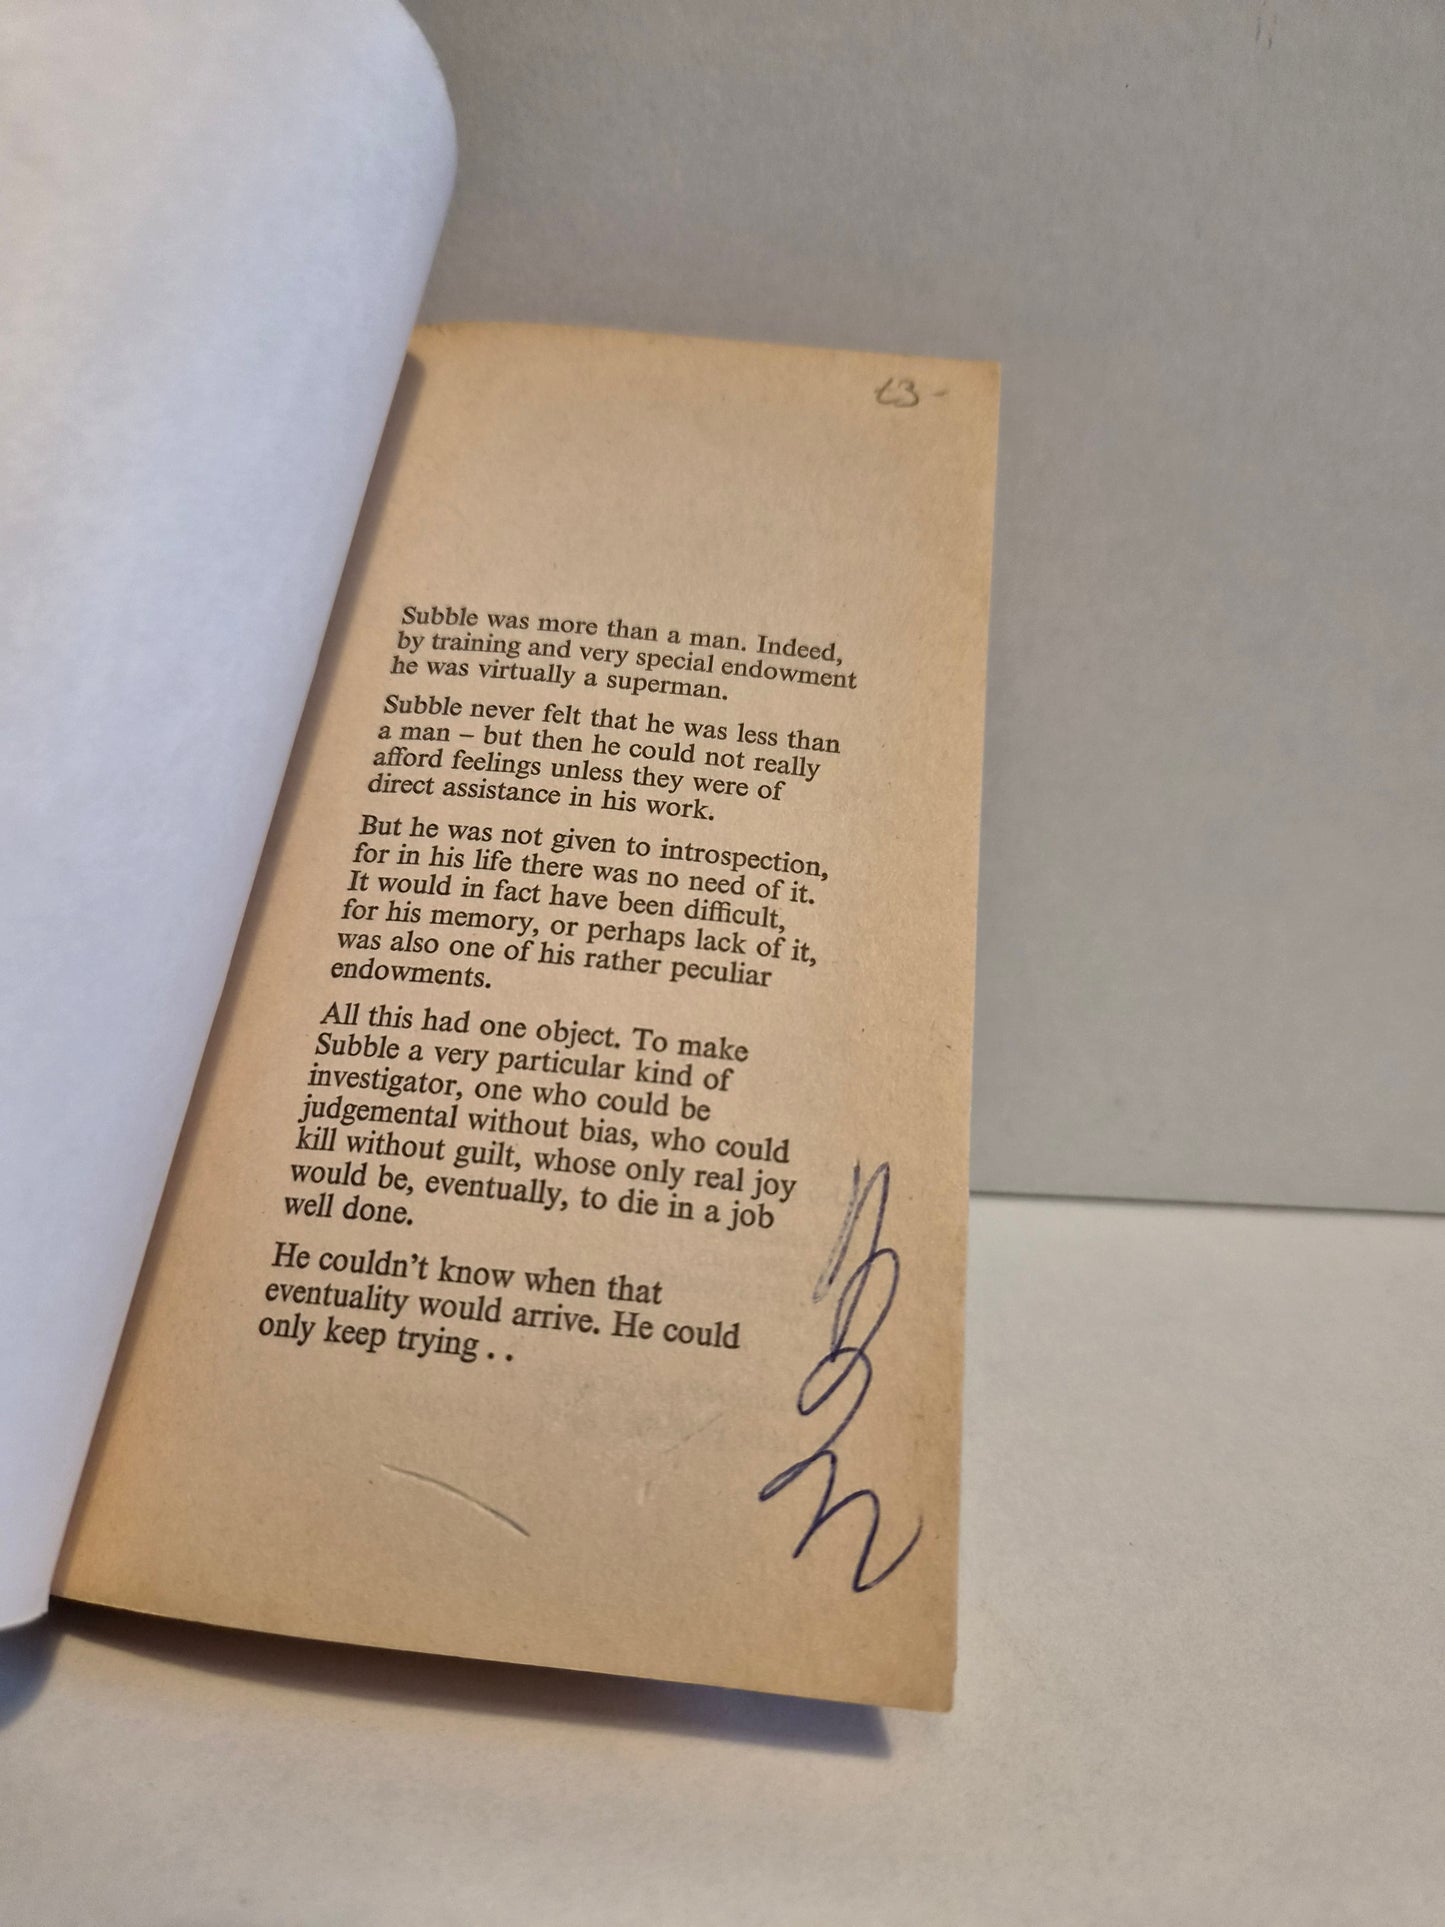 £3-
Subble was more than a man. Indeed,
by training and very special endowment
he was virtually a superman.
Subble never felt that he was less than
a man – but then he could not really
afford feelings unless they were of
direct assistance in his work.
But he was not given to introspection,
for in his life there was no need of it.
It would in fact have been difficult,
for his memory, or perhaps lack of it,
was also one of his rather peculiar
endowments.
All this had one object. To make
Subble a very particular kind of
investigator, one who could be
judgemental without bias, who could
kill without guilt, whose only real joy
would be, eventually, to die in a job
well done.
He couldn’t know when that
eventuality would arrive. He could
only keep trying . .